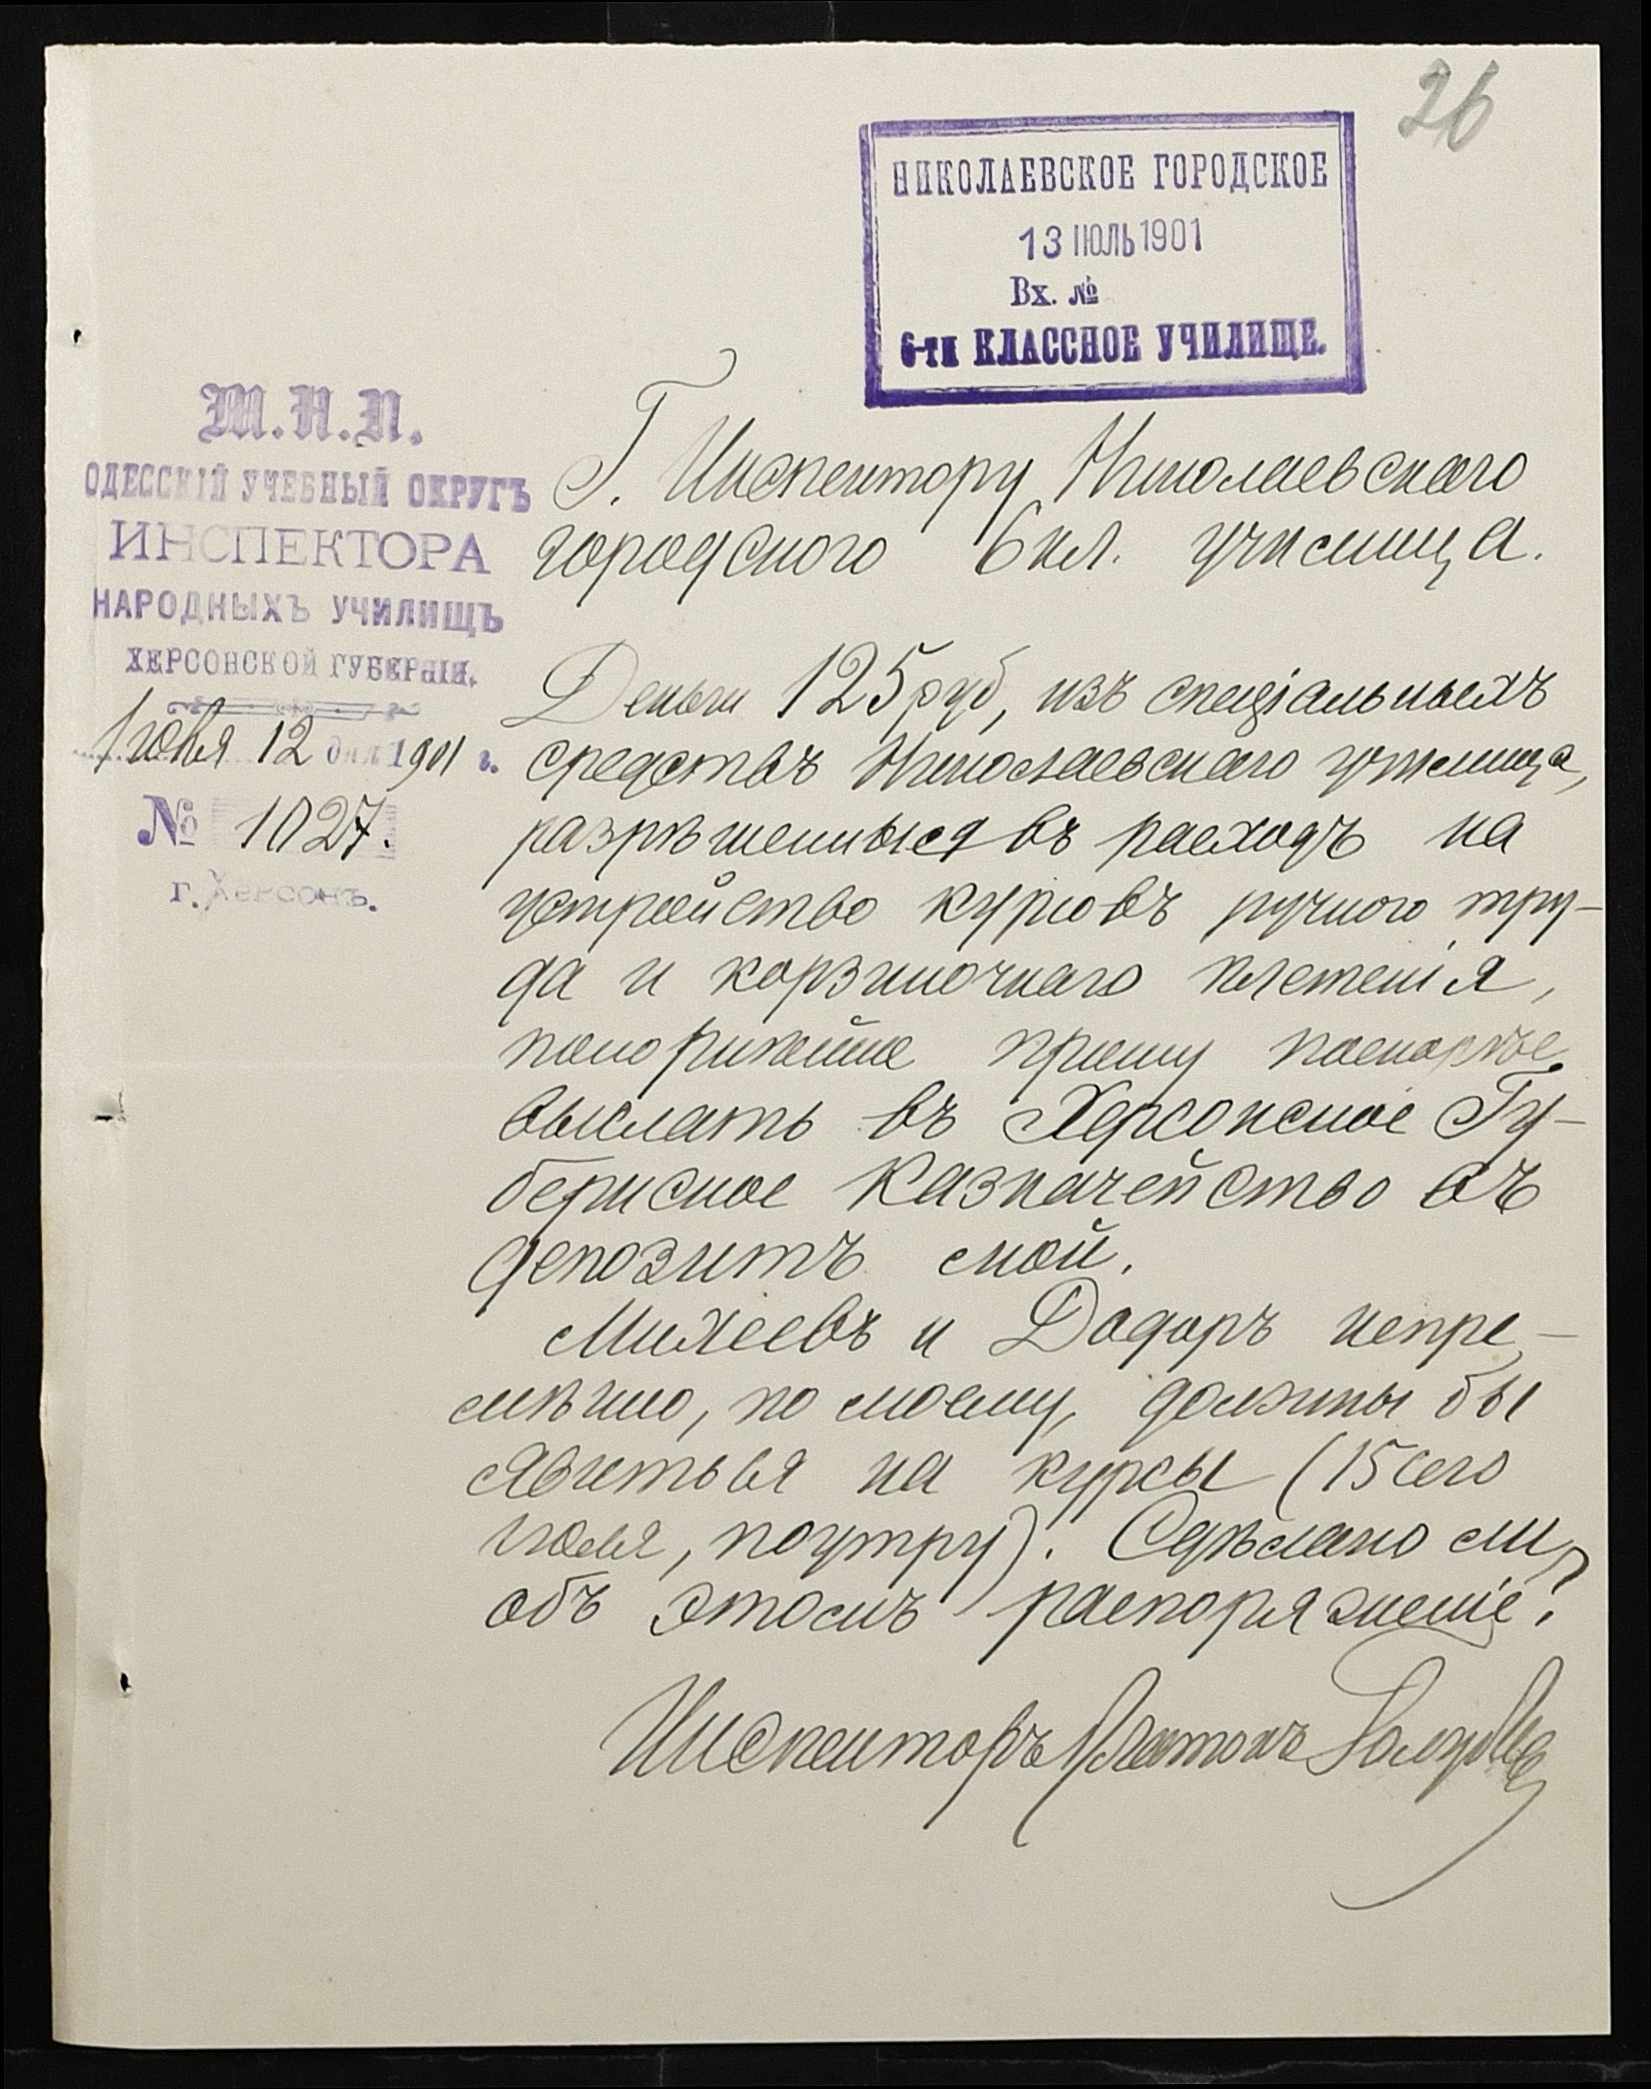 26
НИКОЛАЕВСКОЕ ГОРОДСКОЕ
13 ІЮЛЬ 1901
Вх. №
6-ти КЛАССНОЕ УЧИЛИЩЕ.
М.Н.П.
ОДЕССКІЙ УЧЕБНЫЙ ОКРУГЪ
ИНСПЕКТОРА
НАРОДНЫХЪ УЧИЛИЩЪ
ХЕРСОНСКОЙ ГУБЕРНІИ.
Іюля 12 дня 1901 г.
№ 1027.
Г. ХЕРСОНЪ.
Г. Инспектору Николаевскаго
городского 6 кл. училища.
Деньги 125 руб, изъ спеціальныхъ
средствъ Николаевскаго училища,
разрѣшенныя въ расходъ на
устройство курсовъ ручного тру-
да и корзиночнаго плетенія,
покорнѣйше прошу поскорѣе
выслать въ Херсонское Гу-
бернское Казначейство въ
депозитъ мой.
Михеевъ и непре-
мѣнно, по моему, должны бы
явиться на курсы (15 сего
Іюля, поутру). Сдѣлано ли
объ этомъ распоряженіе?
Инспекторъ Платонъ